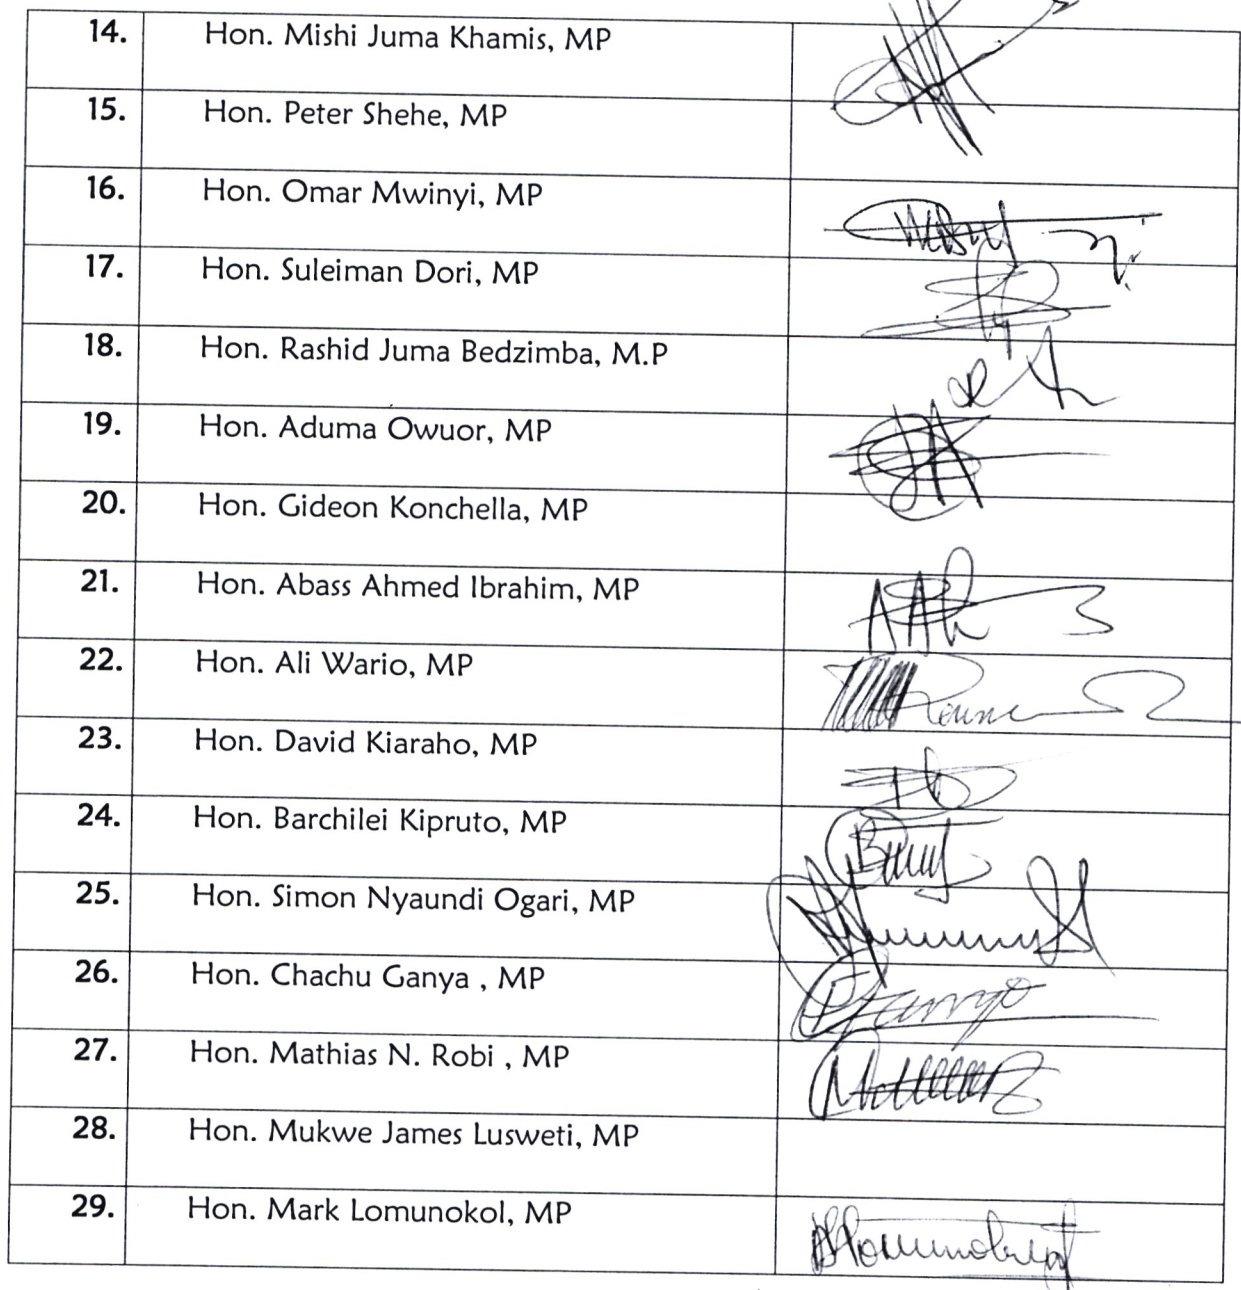 14. Hon. Mishi Juma Khamis, MP
15. Hon. Peter Shehe, MP
16. Hon. Omar Mwinyi, MP
17. Hon. Suleiman Dori, MP
18. Hon. Rashid Juma Bedzimba, M.P
19. Hon. Aduma Owuor, MP
20. Hon. Gideon Konchella, MP
21. Hon. Abass Ahmed Ibrahim, MP
22. Hon. Ali Wario, MP
23. Hon. David Kiaraho, MP
24. Hon. Barchilei Kipruto, MP
25. Hon. Simon Nyaundi Ogari, MP
26. Hon. Chachu Ganya , MP
27. Hon. Mathias N. Robi , MP
28. Hon. Mukwe James Lusweti, MP
29. Hon. Mark Lomunokol, MP